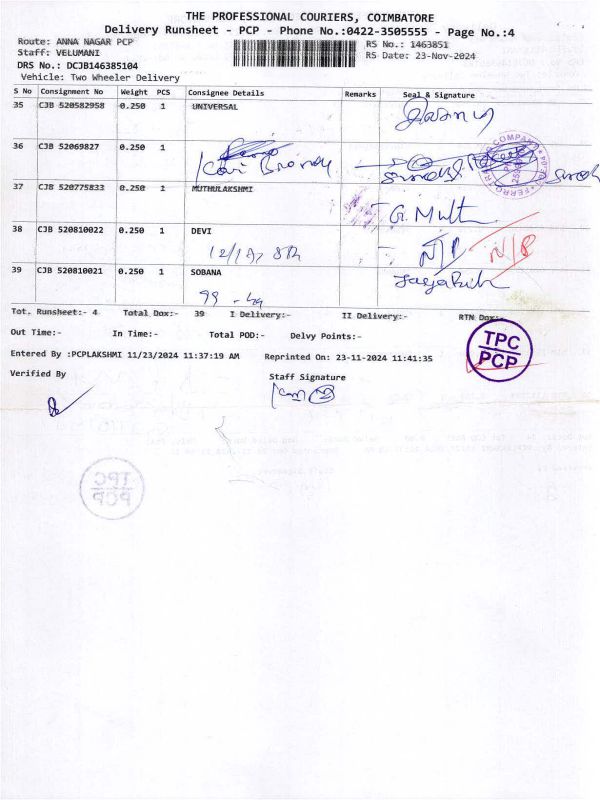 THE PROFESSIONAL COURIERS, COIMBATORE
Delivery Runsheet - PCP - Phone No.:0422-3505555 - Page No.:4
Route: ANNA NAGAR PCP
Staff: VELUMANI
DRS No.: DCJB146385104
Vehicle: Two Wheeler Delivery
RS No.: 1463851
RS Date: 23-Nov-2024
S No Consignment No Weight PCS Consignee Details Remarks Seal & Signature
35 CJB 520582958 0.250 1 UNIVERSAL
36 CJB 52069827 0.250 1
37 CJB 520775833 0.250 1 MUTHULAKSHMI
G. Muth
38 CJB 520810022 0.250 1 DEVI
N/P N/P
39 CJB 520810021 0.250 1 SOBANA
99
Tot. Runsheet:- 4 Total Dox:- 39 I Delivery:- II Delivery:- RTN Dox:-
Out Time:- In Time:- Total POD:- Delvy Points:-
Entered By :PCPLAKSHMI 11/23/2024 11:37:19 AM Reprinted On: 23-11-2024 11:41:35
TPC
PCP
Verified By Staff Signature